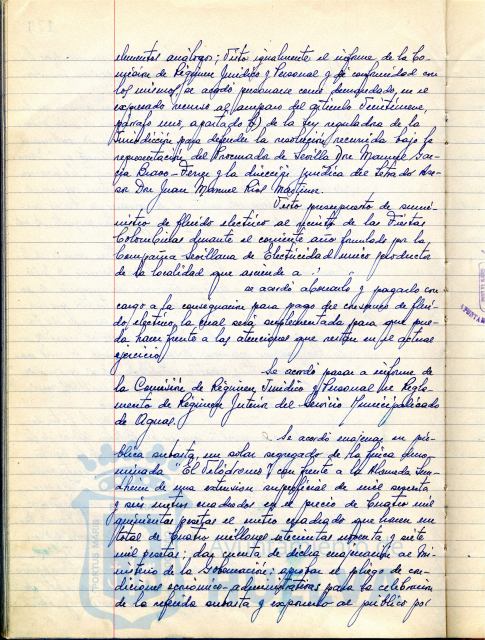 elementos análogos; Visto igualmente el informe de la Co-
misión de Régimen Jurídico y Personal y de conformidad con
los mismos, se acordó personarse como demandado, en el
expresado recurso al amparo del artículo
párrafo uno, apartado b) de la Ley reguladora de la
Jurisdicción para defender la resolución recurrida bajo la
representación del Procurador de Sevilla Don Manuel Gar-
cía Bravo-Ferrer y la dirección jurídica del Letrado Ase-
sor Don Juan Manuel
Visto presupuesto de sumi-
nistro de fluido electrico al recinto de las Fiestas
Colombinas durante el corriente año formulado por la
Compañia Sevillana de Electricidad único productor
de la localidad que asciende a
se acordó abonarlo y pagarlo con
cargo a la consignación para pago de consumo de flúi-
do electrico, la cual será suplementada para que pue-
da hacer frente a las atenciones que restan en el actual
ejercicio.
Se acordó pasar a informe de
la Comisión de Régimen Jurídico y Personal el Regla-
mento de Régimen Interior del Servicio Municipalizado
de Aguas.
Se acordó enajenar en pú-
blica subasta, un solar segregado de la finca deno-
minada "El Velódromo" con frente a la Alameda Sun-
dheim de una extensión superficial de mil
y seis metros cuadrados en el precio de cuatro mil
quinientas pesetas el metro cuadrado que hacen un
total de cuatro millones setecientas noventa y siete
mil pesetas; dar cuenta de dicha enajenación al Mi-
nisterio de la Gobernación; aprobar el pliego de con-
diciones económico-administrativas para la celebracion
de la referida subasta y exponerlo al público por